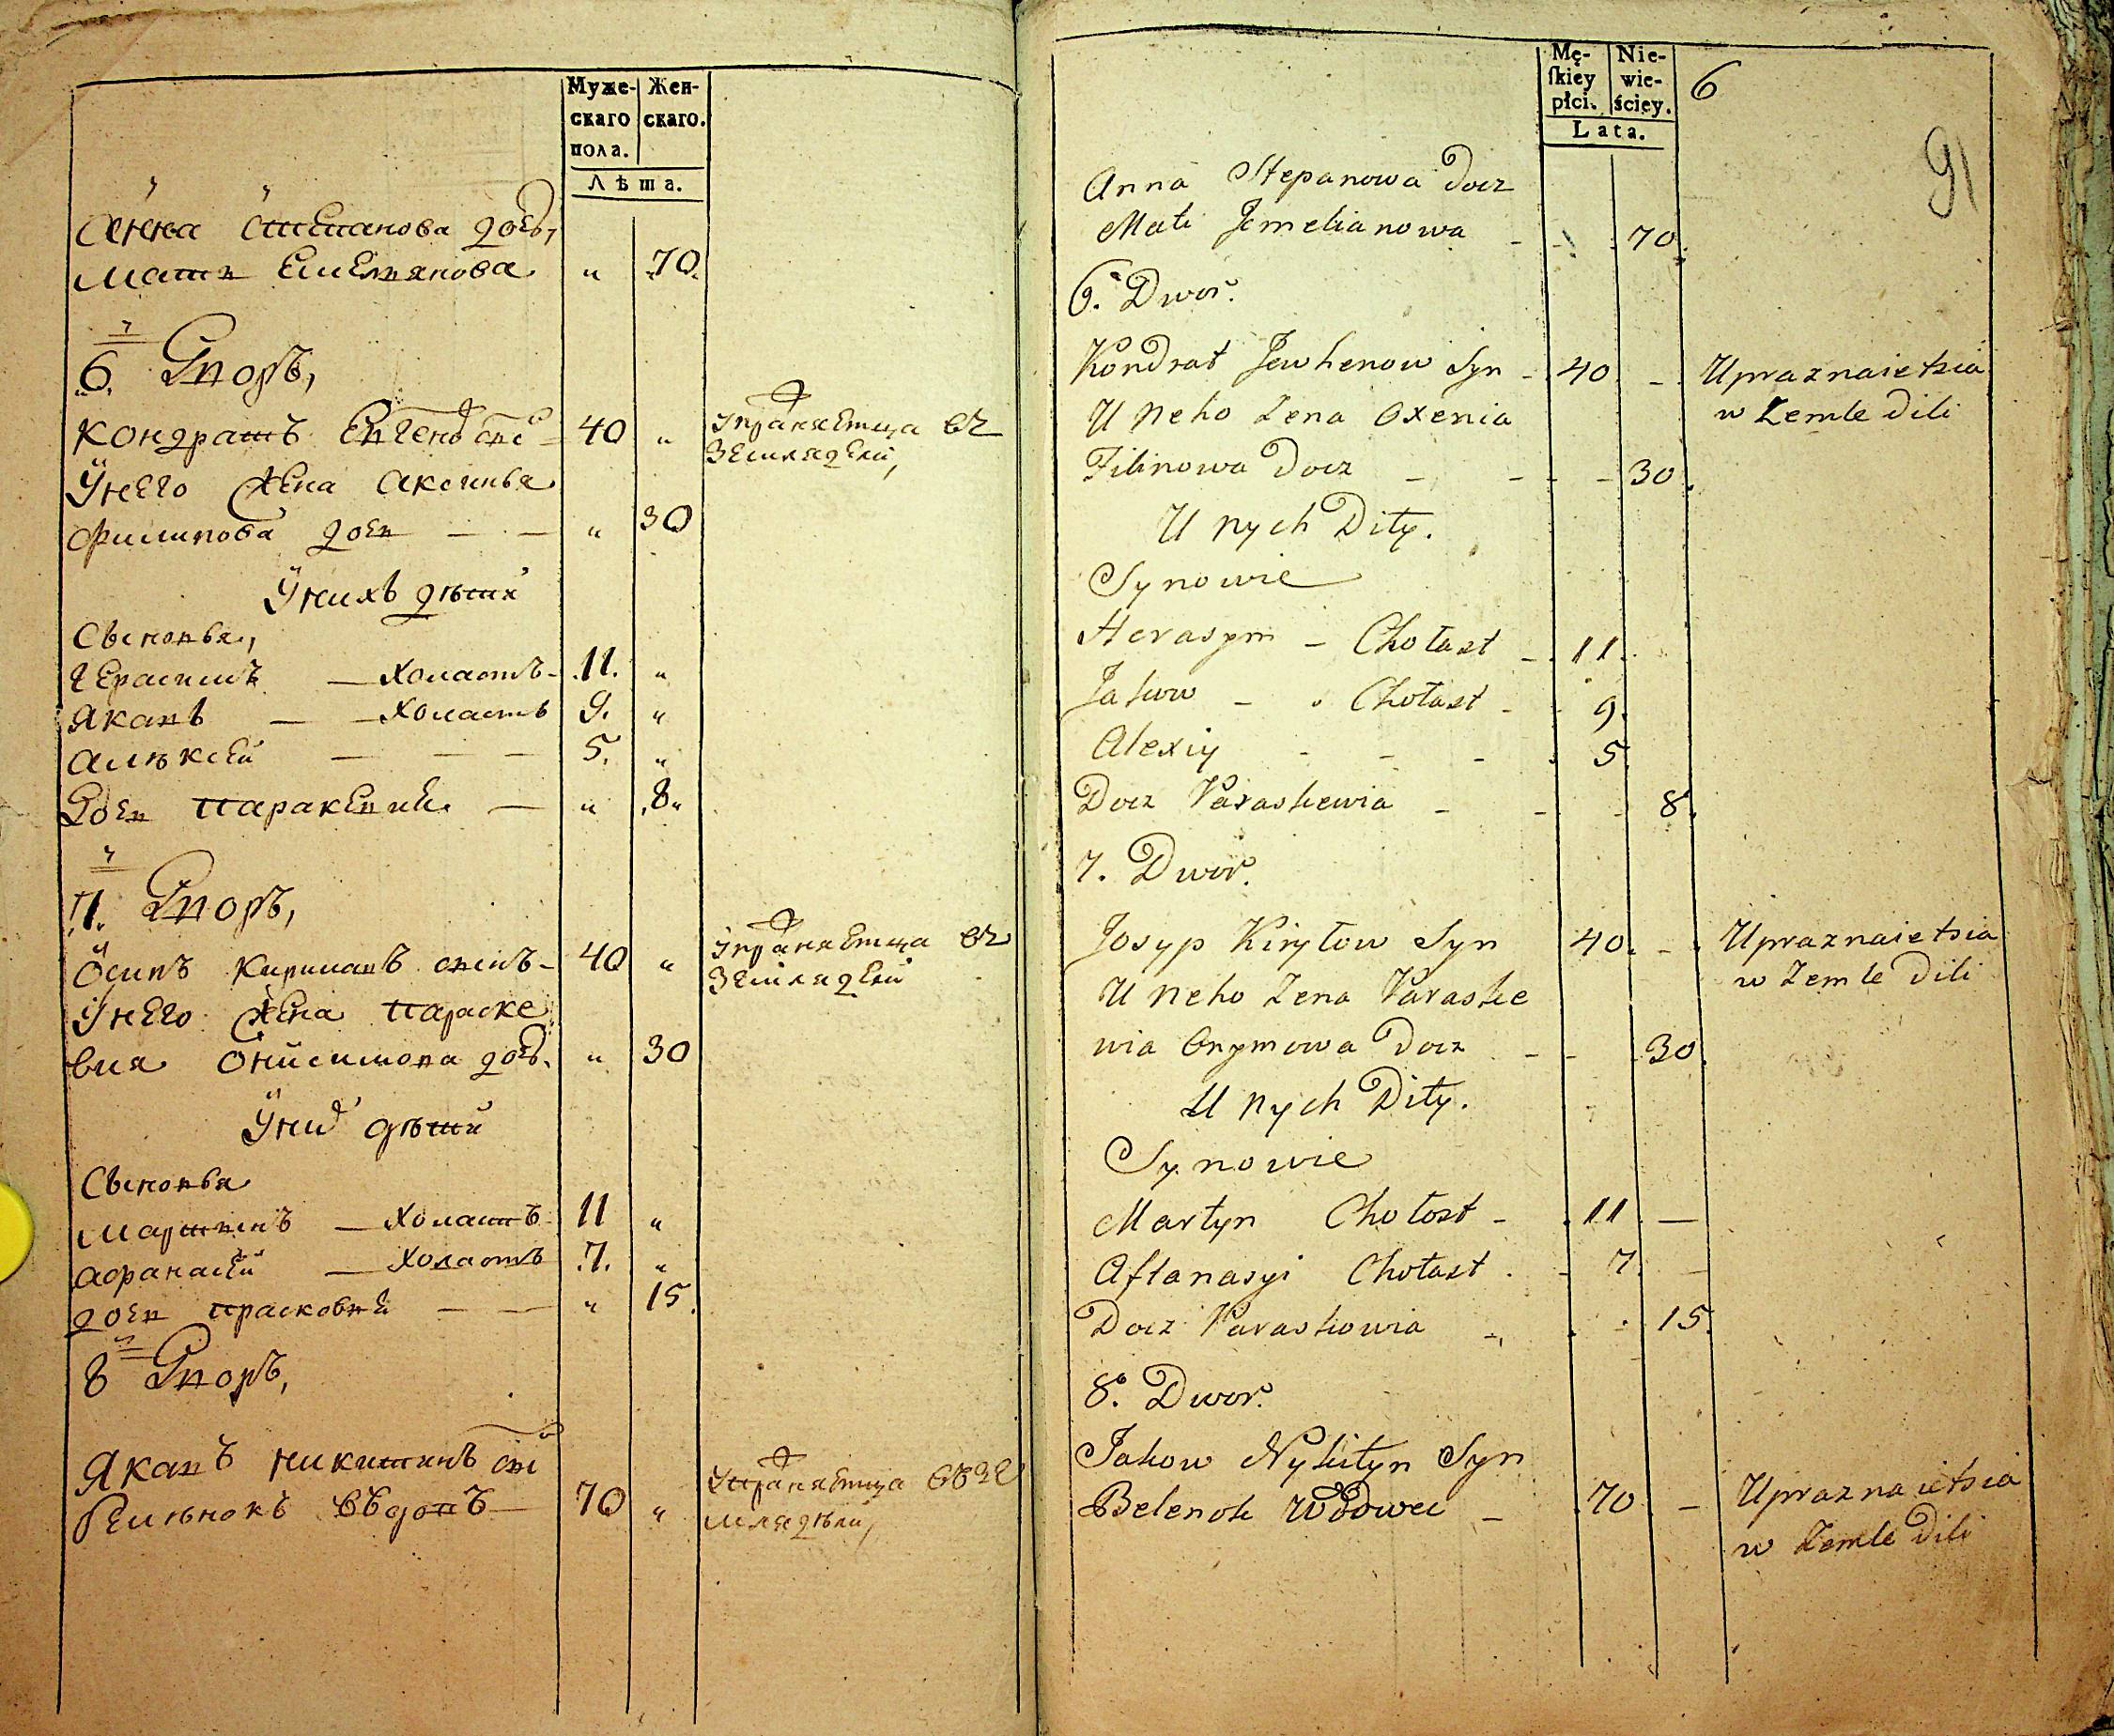 Муже-
скаго
пола.
Жен-
скаго.
Лѣта.
Анна Степанова дочь,
Мати Емельянова " 70.
6. Дворъ,
Кондратъ Евгеновъ снъ 40 " Упражняетца въ
земледели,
У него жена Аксинья
Филипова дочь — — " 30
У нихъ дѣти
Сыновья,
Герасимъ — холастъ 11. "
Яковъ — — холастъ 9. "
Алѣксей — — — 5. "
Дочь Параскевия — " 8
7. Дворъ,
Осипъ Кириловъ сынъ 40 " Упражняетца въ
земледели
У него жена Параске
вия Онисимова дочь " 30
У них дѣти
Сыновья
Мартынъ — холастъ 11 "
Афанасий — холастъ 7. "
дочь Прасковия — — " 15.
8 Дворъ,
Яковъ Никитинъ снъ
Беленокъ вдовъ — 70 " Упражняетца въ зе
мледѣли,
Mę-
skiey
płci.
Nie-
wie-
ściey.
6
Lata.
91
Anna Stepanowa docz
Mati Jemelianowa - - 70.
6. Dwor.
Kondrat Jewhenow Syn - 40 - Upraznaietsia
w Zemle dili
U Neho Zena Oxenia
Filinowa docz - - - - 30.
U nych Dity.
Synowie
Herasym - Chołast - 11.
Jakow - Chołast - 9.
Alexiy - - - 5
Docz Paraskewia - - - 8.
7. Dwor.
Josyp Kiryłow Syn 40. - Upraznaietsia
w Zemle dili
U Neho Zena Paraske
wia Onymowa docz - - 30.
U nych Dity.
Synowie
Martyn Chołost - 11 —
Aftanasyi Chołast . - 7. —
Docz Paraskowia - . - 15.
8. Dwor.
Jakow Nykityn Syn
Belenok Wdowec - 70 - Upraznaietsia
w Zemle dili